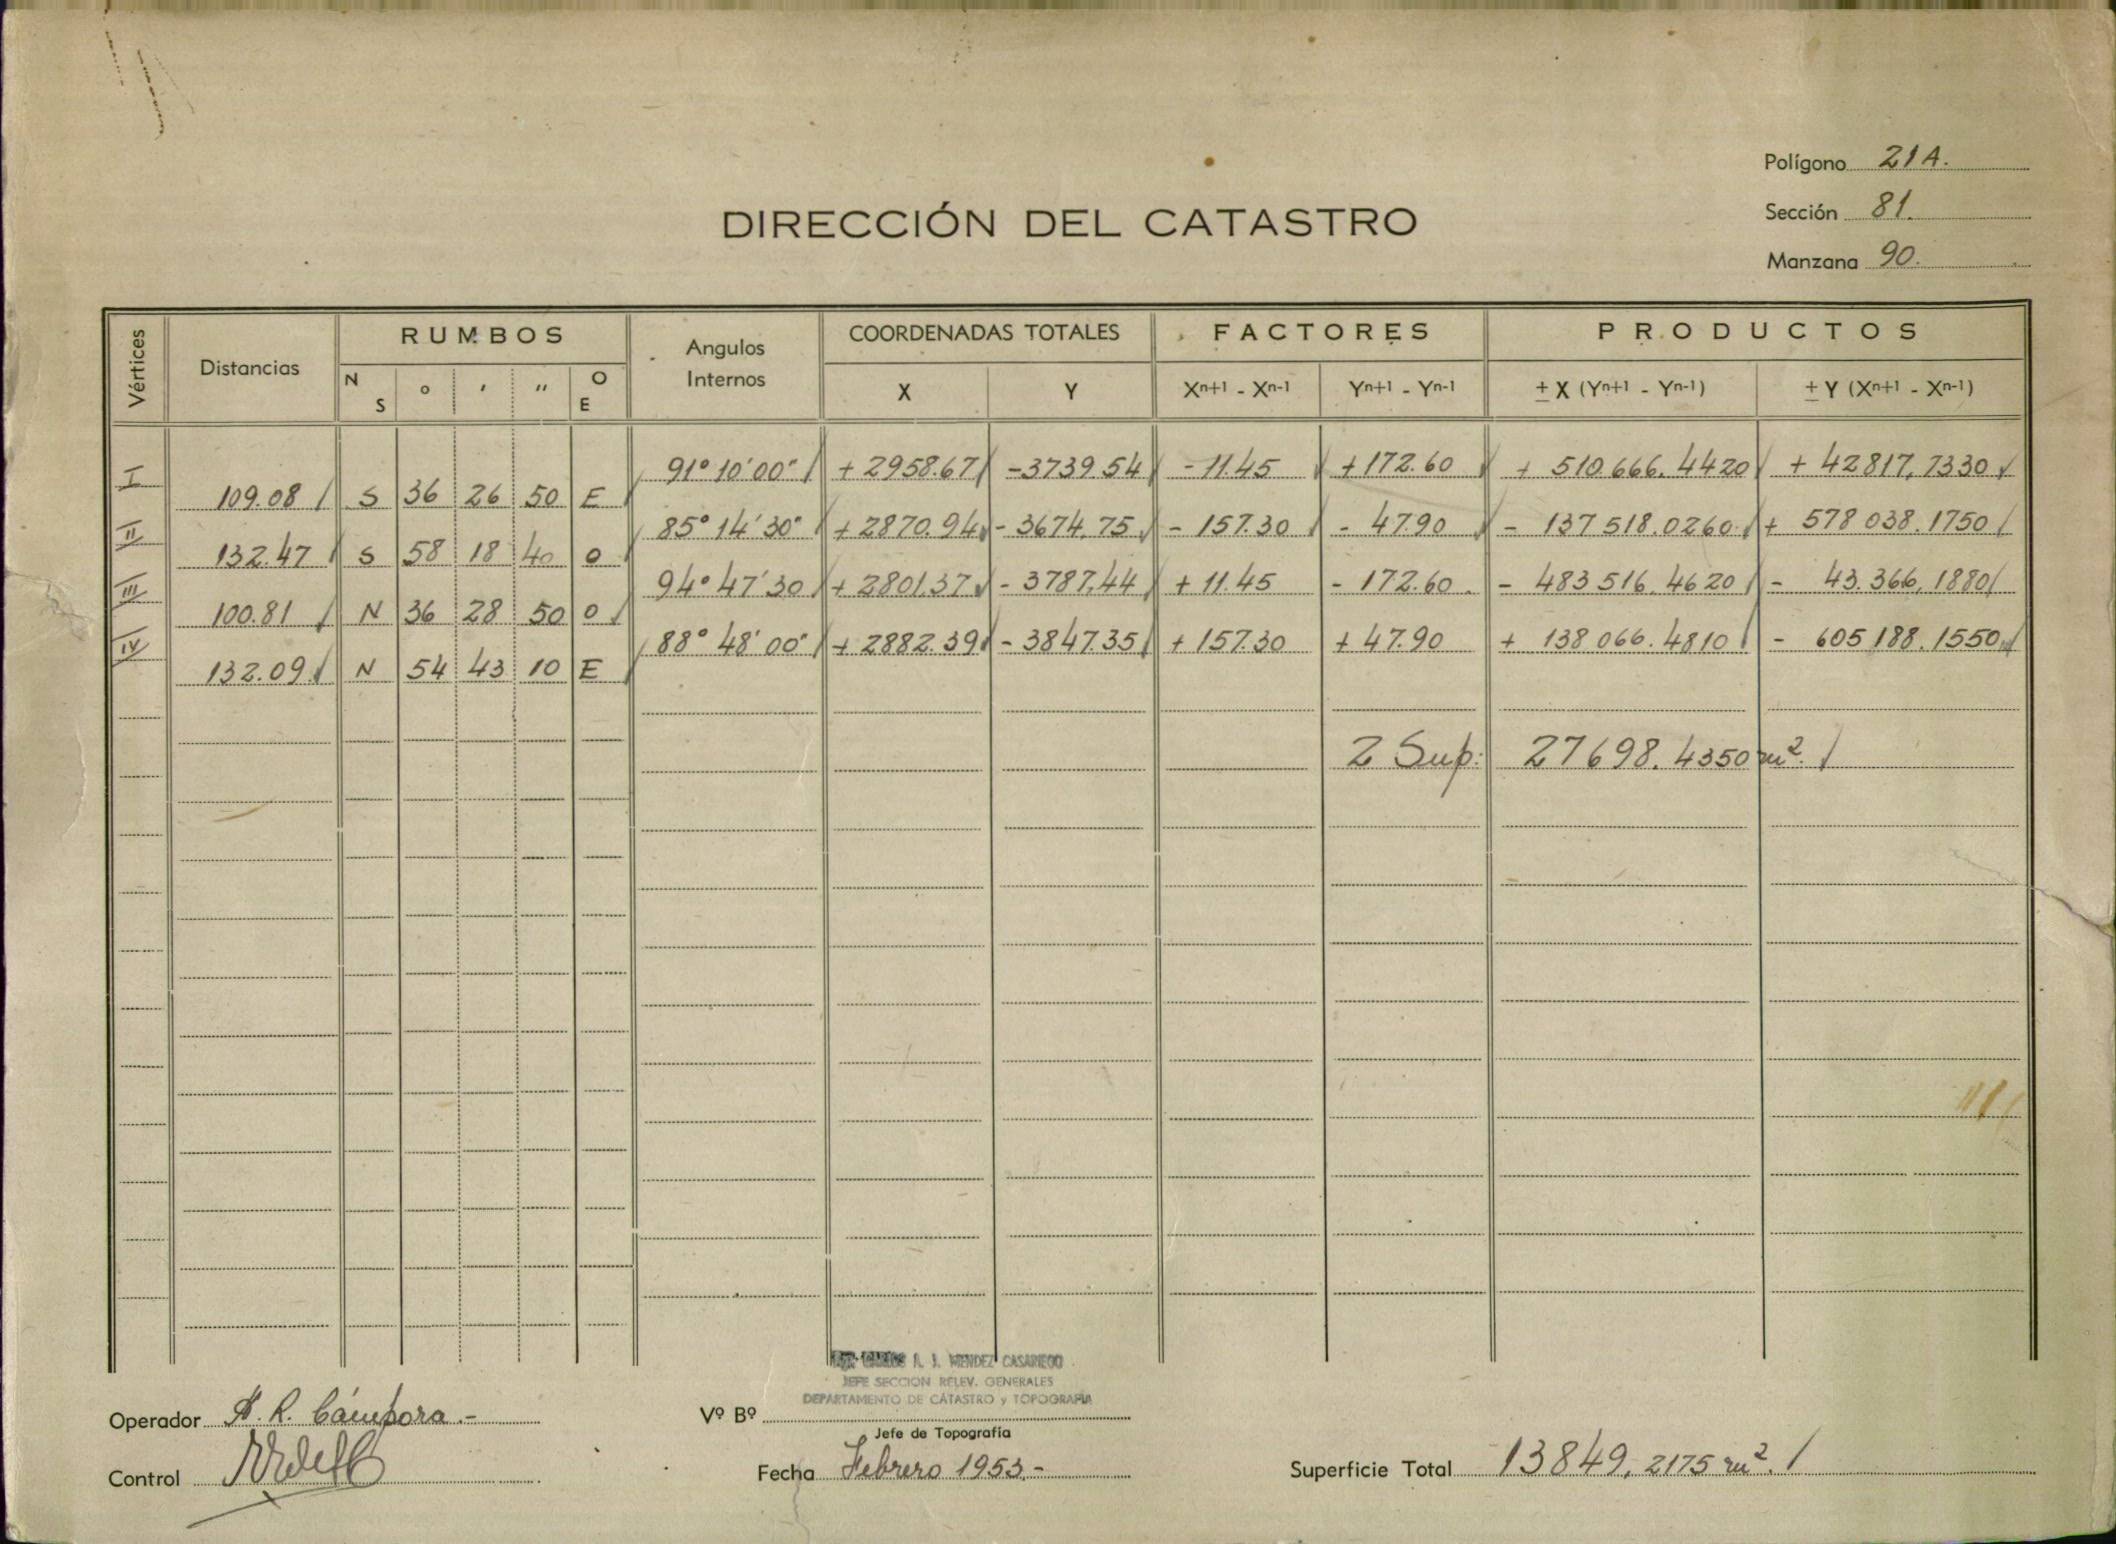 Polígono 21A.
Sección 81.
DIRECCIÓN DEL CATASTRO
Manzana 90.
Vértices Distancias RUMBOS Angulos Internos COORDENADAS TOTALES FACTORES PRODUCTOS
N S ° ' " O E X Y Xⁿ⁺¹ - Xⁿ⁻¹ Yⁿ⁺¹ - Yⁿ⁻¹ ± X (Yⁿ⁺¹ - Yⁿ⁻¹) ± Y (Xⁿ⁺¹ - Xⁿ⁻¹)
I 91° 10' 00" + 2958.67 -3739.54 - 11.45 +172.60 + 510.666.4420 + 42817,7330
109.08 S 36 26 50 E
II 85° 14' 30" + 2870.94 - 3674.75 - 157.30 - 47.90 - 137518.0260 + 578038.1750
132.47 S 58 18 40 O
III 94° 47' 30 + 2801.37 - 3787.44 + 11.45 - 172.60. - 483516.4620 - 43.366,1880
100.81 N 36 28 50 O
IV 88° 48' 00" + 2882.39 - 3847.35 + 157.30 + 47.90 + 138066.4810 - 605188.1550
132.09 N 54 43 10 E
2 Sup: 27698.4350 m².
A. J. MENDEZ CASARIEGO
JEFE SECCION RELEV. GENERALES
DEPARTAMENTO DE CATASTRO y TOPOGRAFIA
Operador A. R. Cámpora.-
Vº Bº
Jefe de Topografía
Control
Fecha Febrero 1953.-
Superficie Total 13849,2175 m².